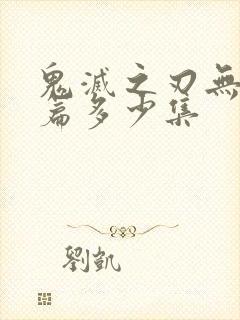 鬼滅之刃無
篇多少集
劉凱